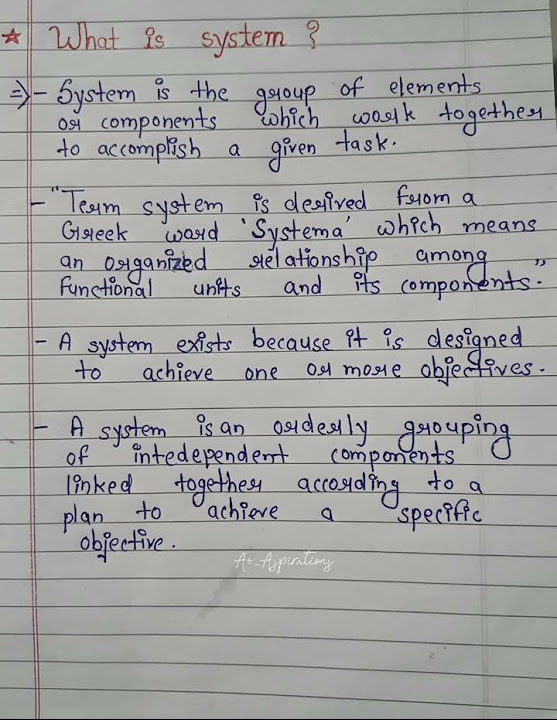 ★ What is system ?
⇒ - System is the group of elements
or components which work together
to accomplish a given task.
- "Term system is derived from a
Greek word 'Systema' which means
an organized relationship among
functional units and its components."
- A system exists because it is designed
to achieve one or more objectives.
- A system is an orderly grouping
of intedependent components
linked together according to a
plan to achieve a specific
objective.
A+-Aspirations